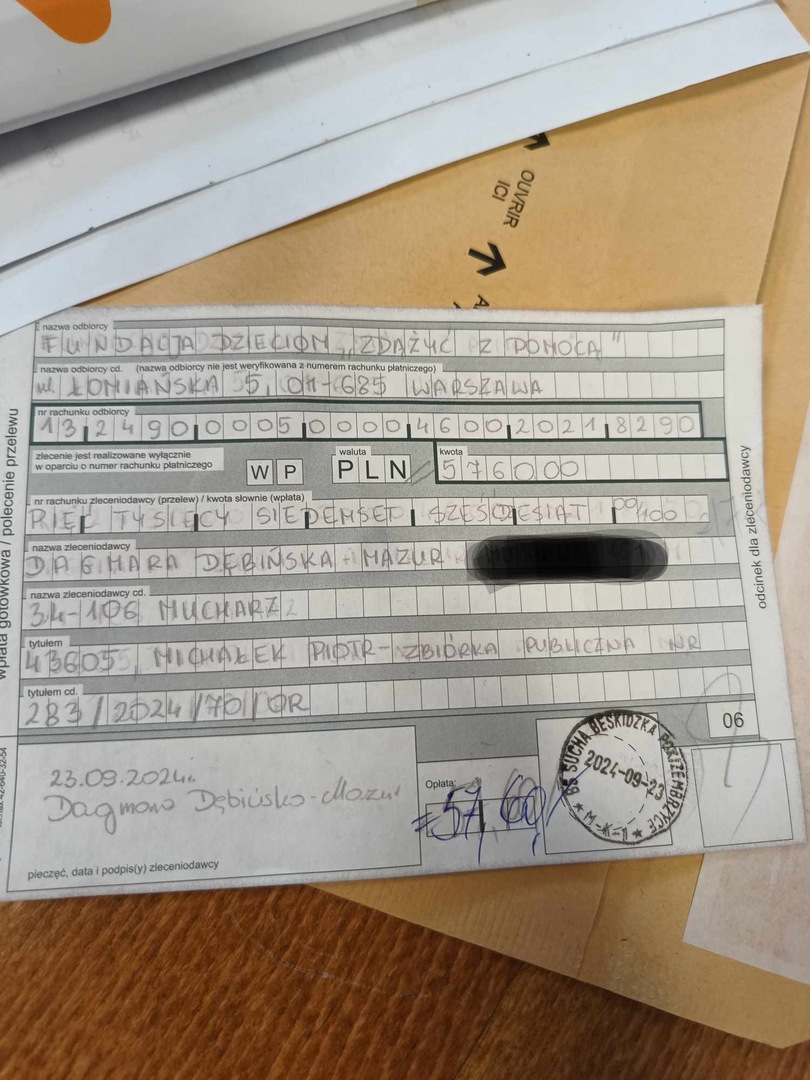 OUVRIR
ICI
nazwa odbiorcy
FUNDACJA DZIECIOM „ZDĄŻYĆ Z POMOCĄ"
nazwa odbiorcy cd. (nazwa odbiorcy nie jest weryfikowana z numerem rachunku płatniczego)
ul. ŁOMIAŃSKA 5, 01-685 WARSZAWA
nr rachunku odbiorcy
13 2490 0005 0000 4600 2021 8290
zlecenie jest realizowane wyłącznie
w oparciu o numer rachunku płatniczego
W P
waluta
PLN
kwota
576000
nr rachunku zleceniodawcy (przelew) / kwota słownie (wpłata)
PIĘĆ TYSIĘCY SIEDEMSET SZEŚĆDZIESIĄT 00/100
nazwa zleceniodawcy
DAGMARA DĘBIŃSKA-MAZUR
nazwa zleceniodawcy cd.
34-106 MUCHARZ
tytułem
43605, MICHAŁEK PIOTR-ZBIÓRKA PUBLICZNA NR
tytułem cd.
283/2024/70/OR
06
23.09.2024r.
Dagmara Dębińska-Mazur
pieczęć, data i podpis(y) zleceniodawcy
Opłata:
=57,60
BS SUCHA BESKIDZKA
2024-09-23
wpłata gotówkowa / polecenie przelewu
odcinek dla zleceniodawcy